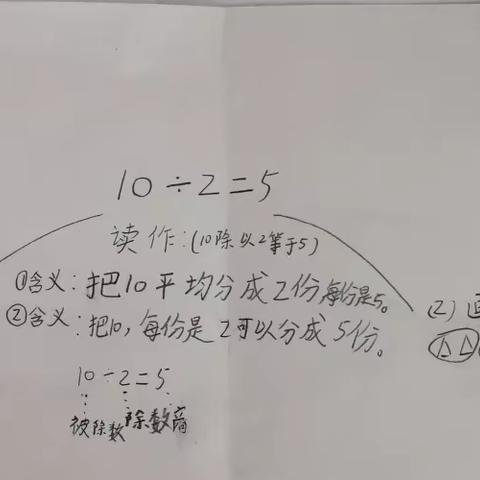 10÷2=5
读作:(10除以2等于5)
①含义:把10平均分成2份每份是5。
②含义:把10,每份是2可以分成5份。
10÷2=5
被除数 除数 商
(2)画